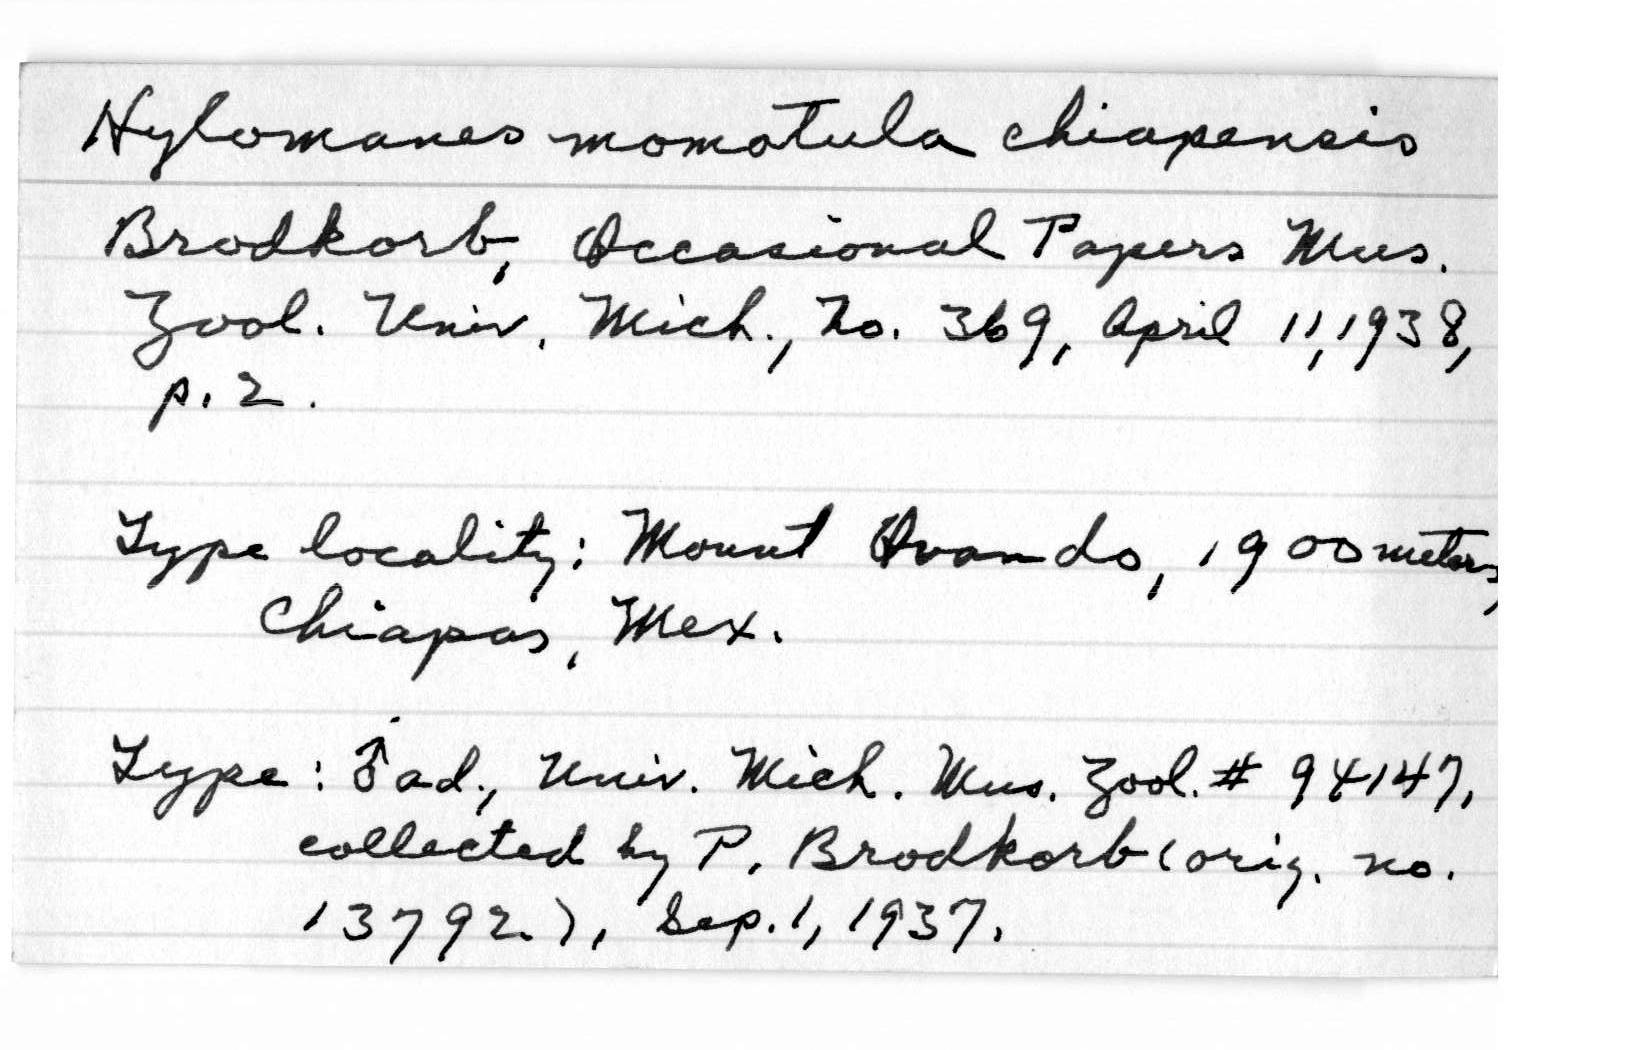 Hylomanes momotula chiapensis
Brodkorb, Occasional Papers Mus.
Zool. Univ. Mich., No. 369, April 11, 1938,
p. 2.
Type locality: Mount Ovando, 1900 meters,
Chiapas, Mex.
Type: ♂ ad., Univ. Mich. Mus. Zool. # 94147,
collected by P. Brodkorb (orig. no.
13792.), Sep. 1, 1937.